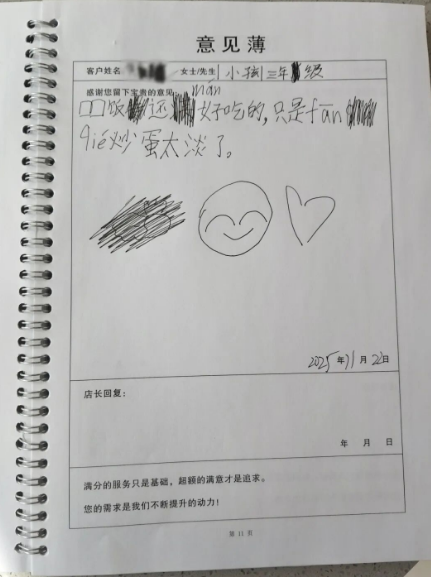 意见薄
客户姓名 女士/先生 小孩三年级
感谢您留下宝贵的意见
mán
饭还好吃的，只是fān
qié炒蛋太淡了。
2025年11月22日
店长回复：
年 月 日
满分的服务只是基础，超额的满意才是追求。
您的需求是我们不断提升的动力！
第 11 页